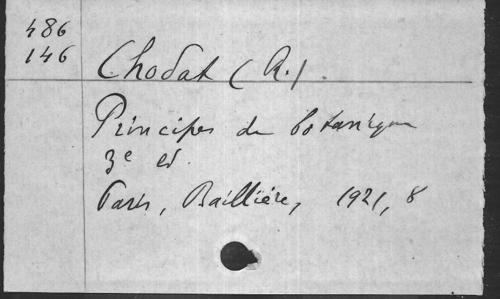 486
146
Chodat (R.)
Principes de botanique
3e éd.
Paris, Baillière, 1921, 8